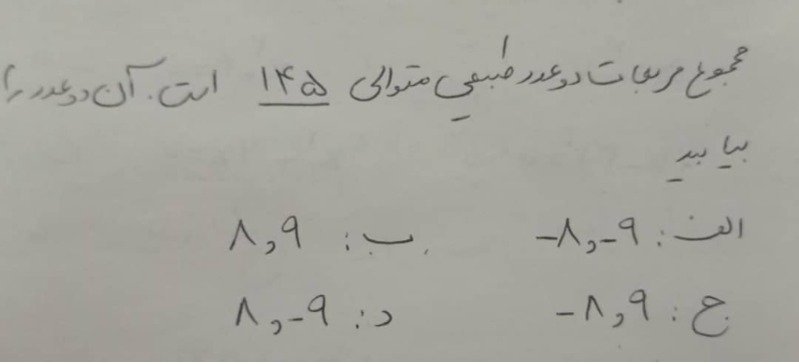 مجموع مربعات دو عدد طبیعی متوالی ۱۴۵ است. آن دو عدد را
بیابید
الف: ۹- و ۸-    ب: ۹ و ۸
ج: ۹ و ۸-    د: ۹- و ۸